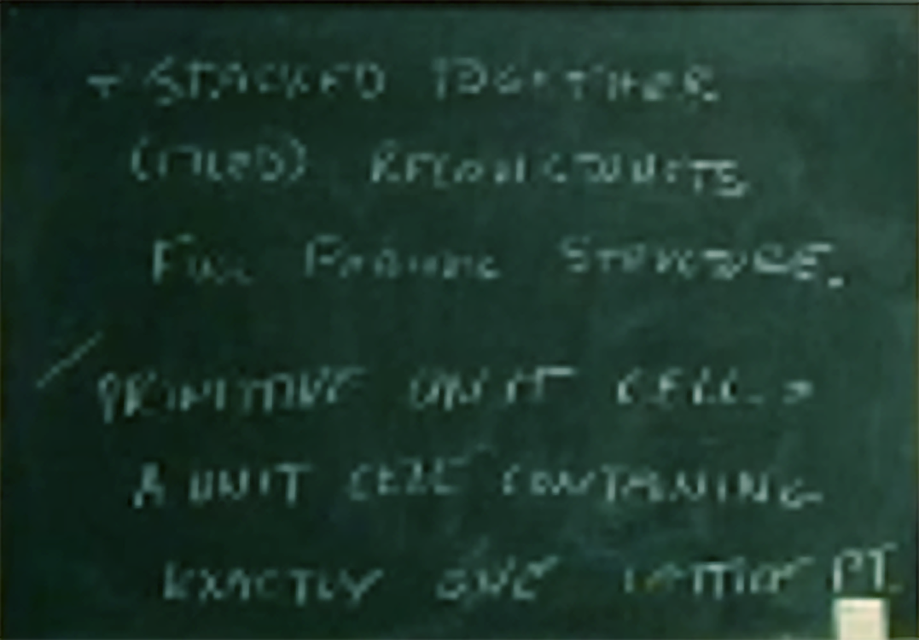 + STACKED TOGETHER
(TILED) RECONSTRUCTS
FULL STRUCTURE.
PRIMITIVE UNIT CELL =
A UNIT CELL CONTAINING
EXACTLY ONE LATTICE PT.